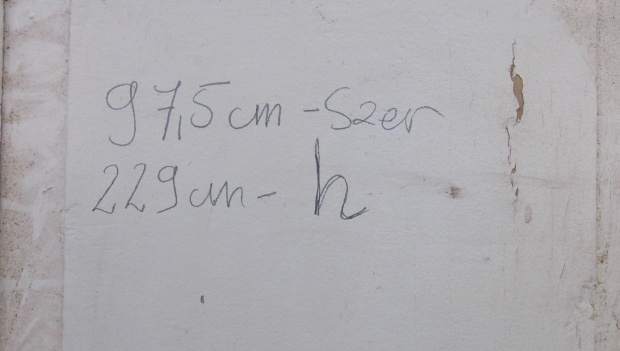 97,5cm-Szer
229cm-h